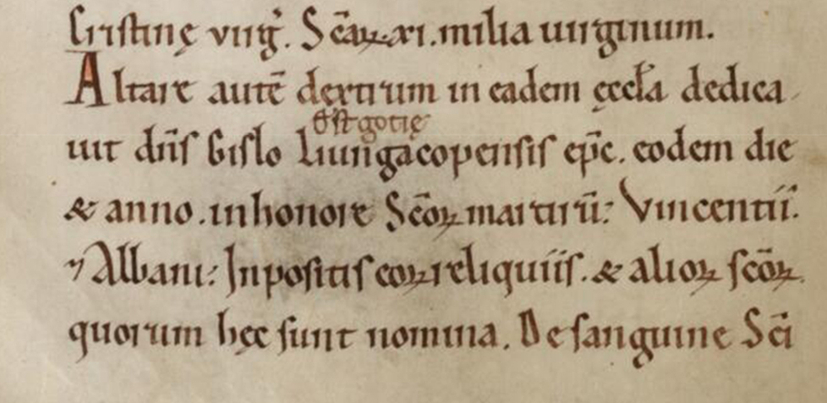 Cristinę virḡ. Sc̄aꝝ .xi. milia uirginum.
Altare autē dextrum in eadem ęccƚa dedica
Ostgotię
uit dn̄s Gislo Liungacopensis ep̄c. eodem die
& anno. in honore Sc̄oꝝ martirū: Vincentii.
⁊ Albani: Inpositis eoꝝ reliquiis. & alioꝝ sc̄oꝝ.
quorum hęc sunt nomina. De sanguine Sc̄i